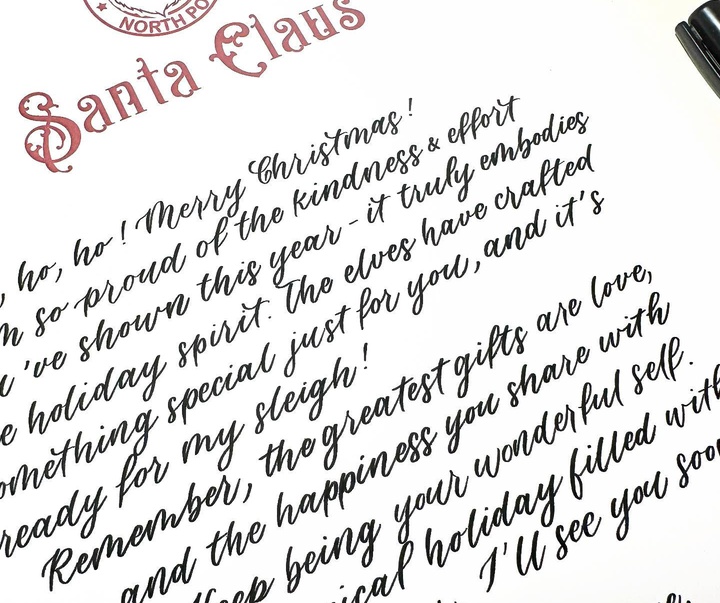 NORTH PO
Santa Claus
, ho, ho! Merry Christmas!
m so proud of the kindness & effort
u've shown this year - it truly embodies
e holiday spirit. The elves have crafted
omething special just for you, and it's
ready for my sleigh!
Remember, the greatest gifts are love,
and the happiness you share with
Keep being your wonderful self.
ical holiday filled with
I'll see you soon